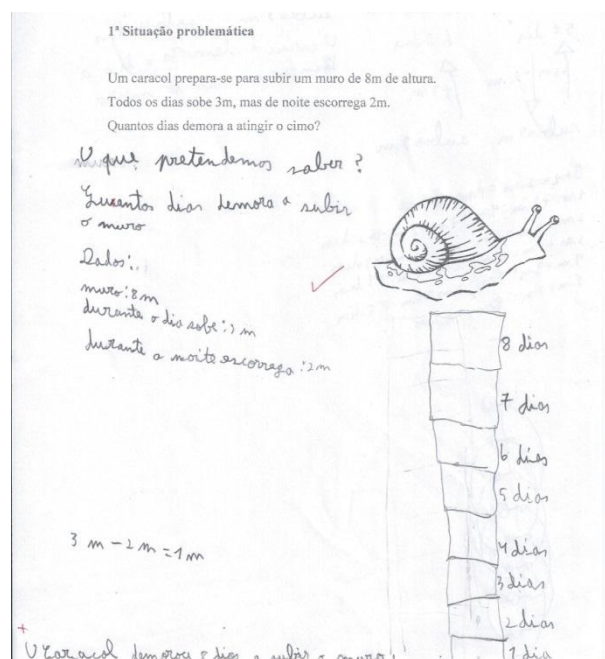 1ª Situação problemática
Um caracol prepara-se para subir um muro de 8m de altura.
Todos os dias sobe 3m, mas de noite escorrega 2m.
Quantos dias demora a atingir o cimo?
O que pretendemos saber?
Quantos dias demora a subir
o muro
Dados:
muro: 8m
durante o dia sobe: 3 m
durante a noite escorrega: 2m
8 dias
7 dias
6 dias
5 dias
3 m - 2 m = 1 m
4 dias
3 dias
2 dias
1 dia
O caracol demorou 8 dias a subir o muro